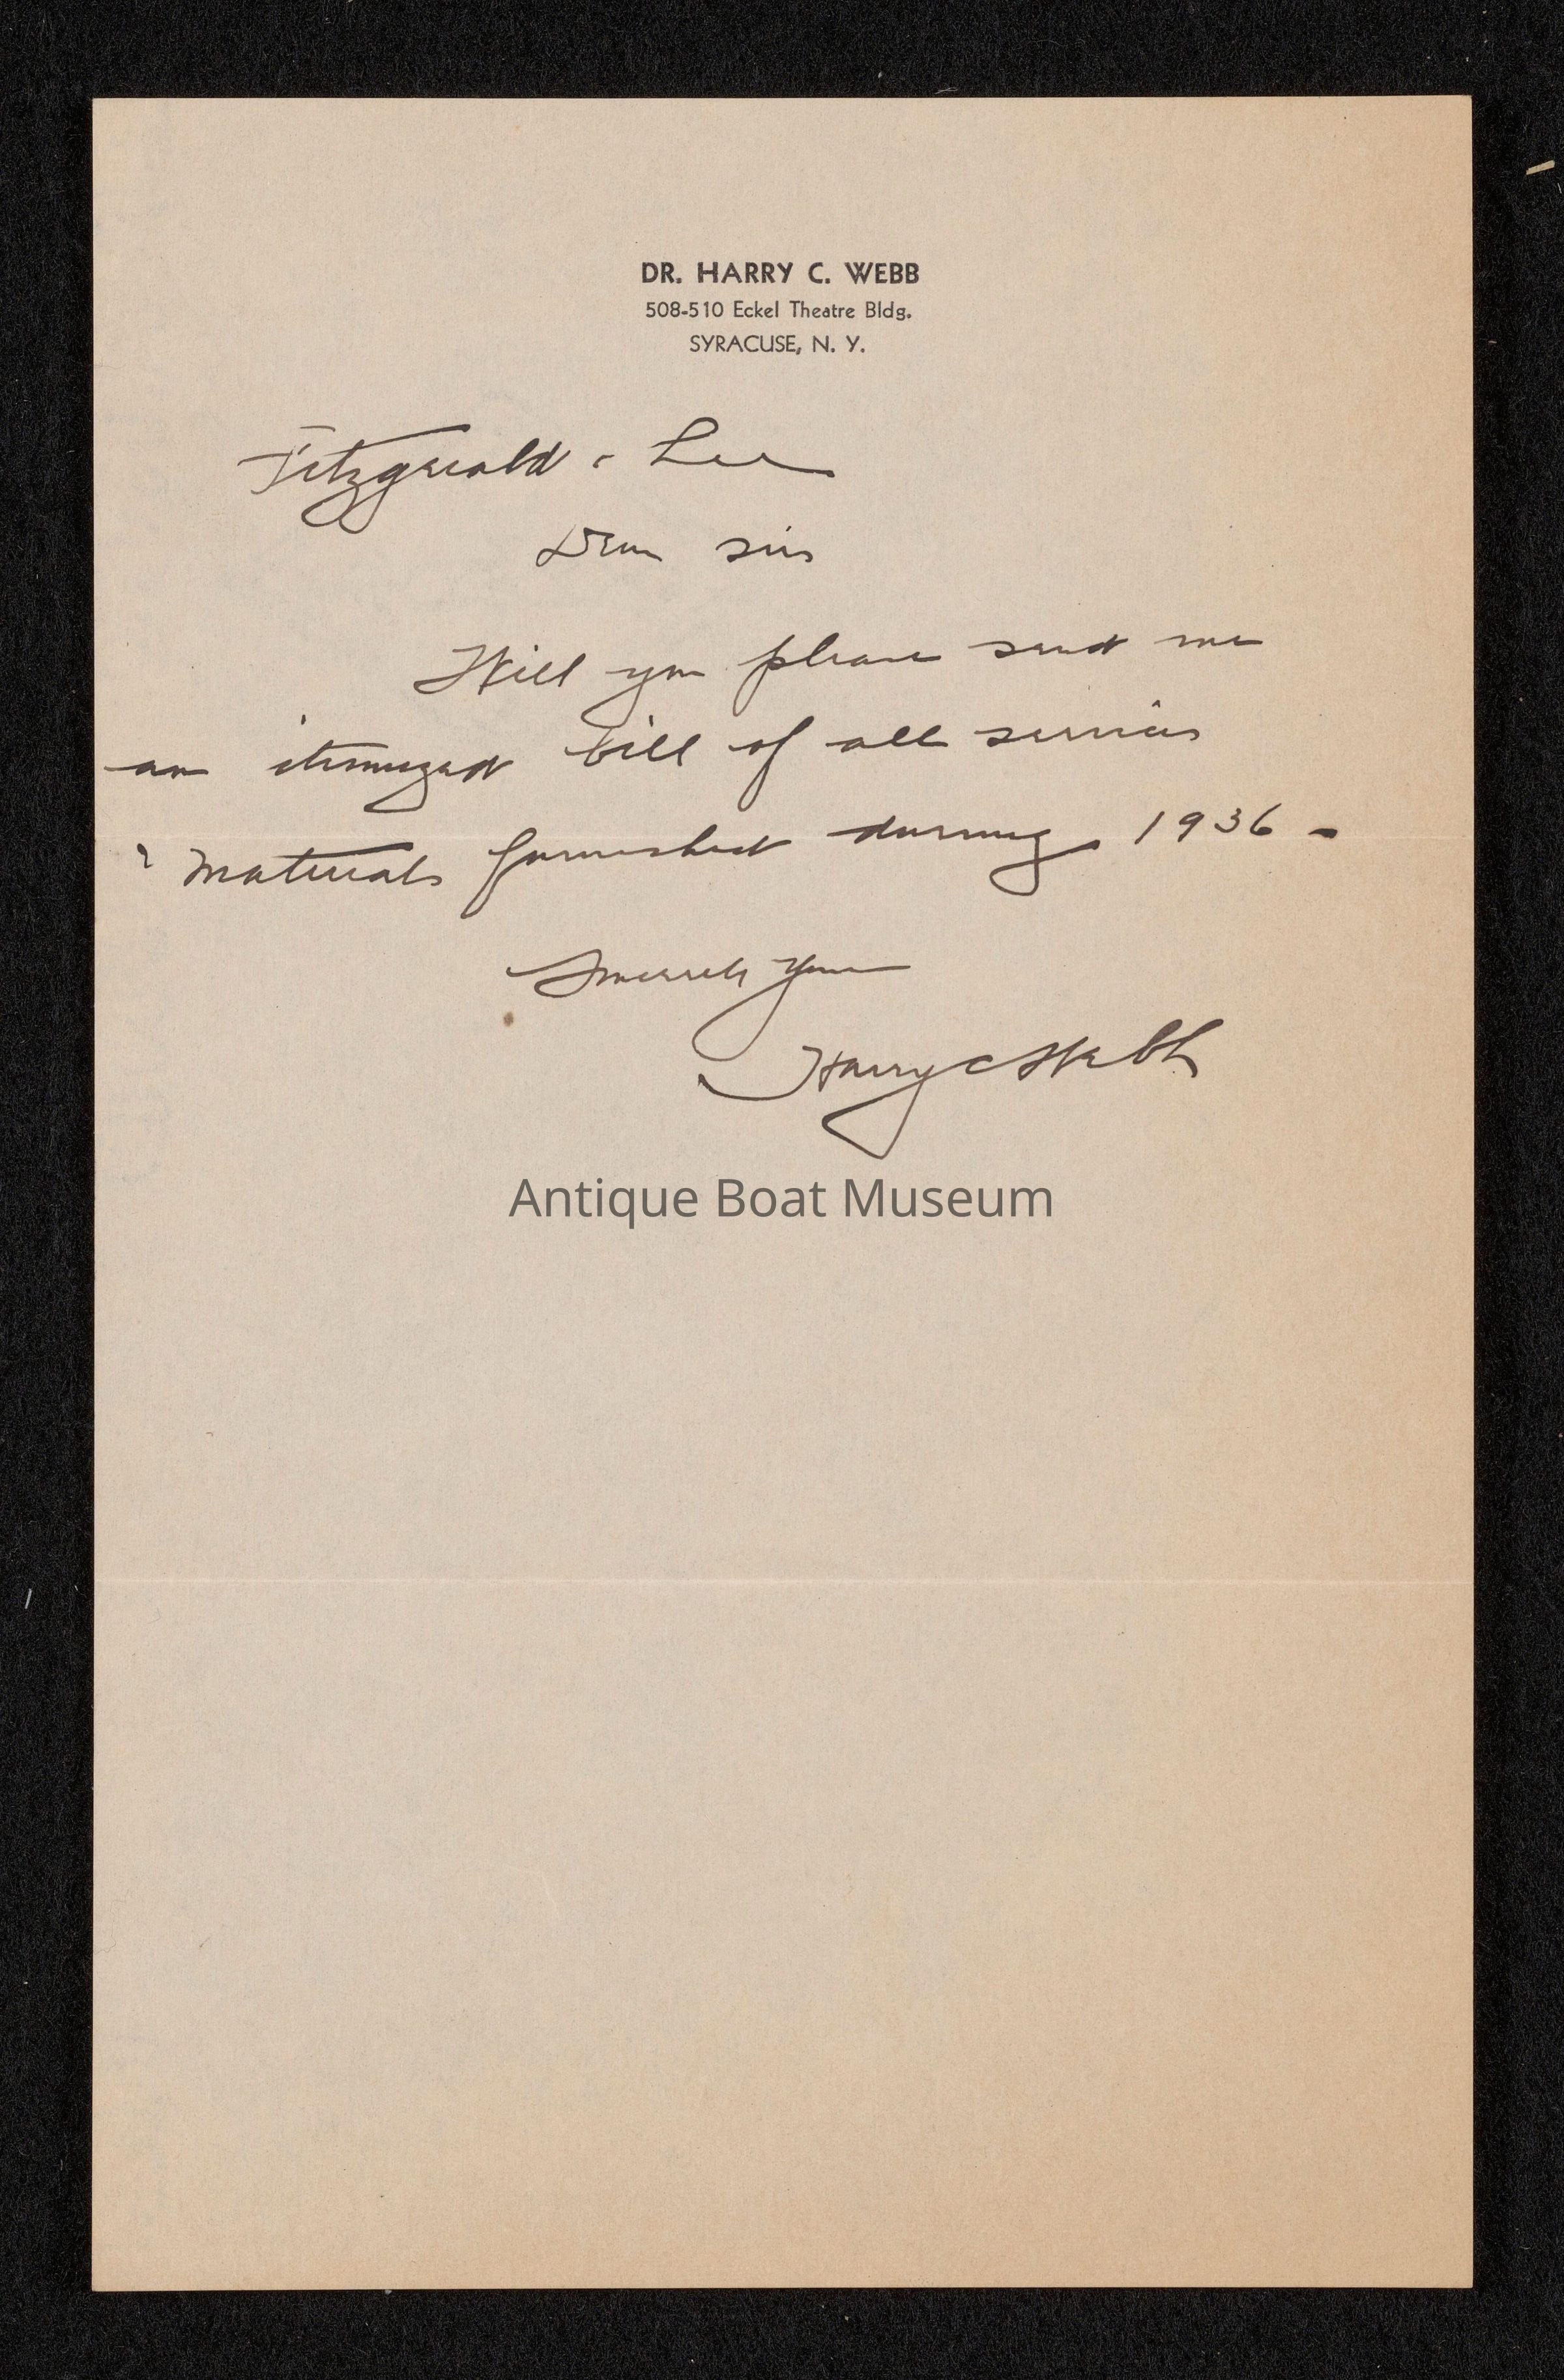 DR. HARRY C. WEBB
508-510 Eckel Theatre Bldg.
SYRACUSE, N. Y.
Fitzgerald & Lee
Dear Sirs
Will you please send me
an itemized bill of all services
& materials furnished during 1936 -
Sincerely Yours
Harry C Webb
Antique Boat Museum